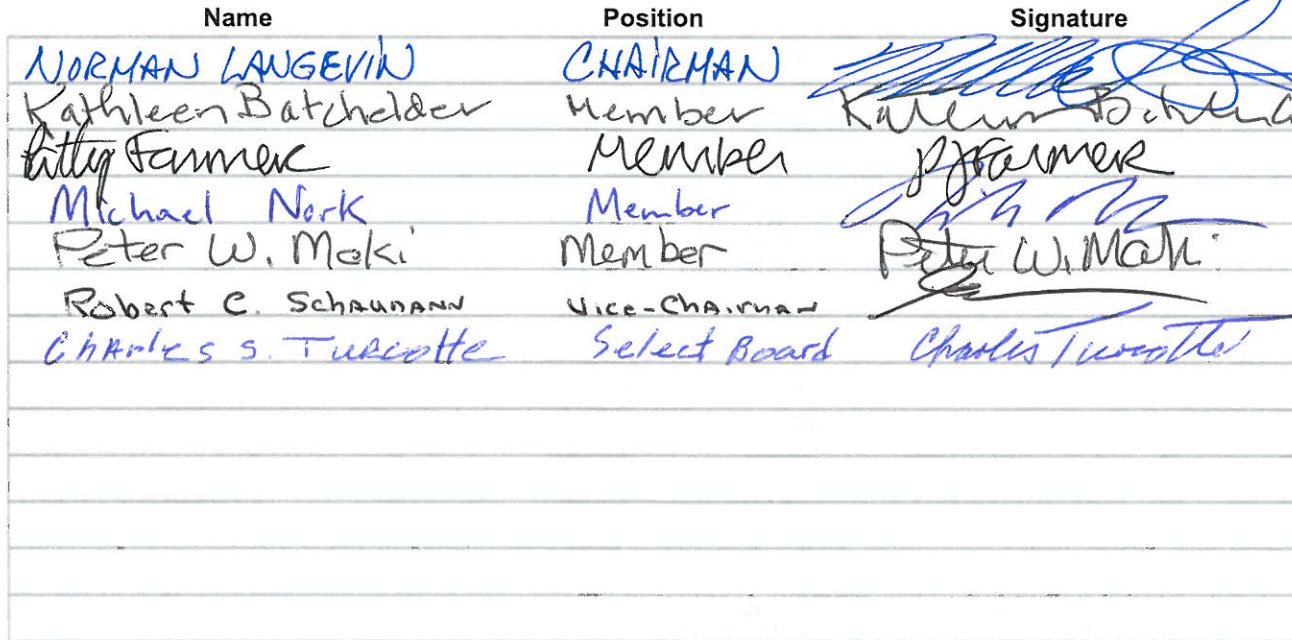 Name Position Signature
NORMAN LANGEVIN CHAIRMAN
Kathleen Batchelder Member
Farmer Member PJFarmer
Michael Nork Member
Peter W. Maki Member Peter W. Maki
Robert C. Schaumann Vice-Chairman
Charles S. Turcotte Select Board Charles Turcotte